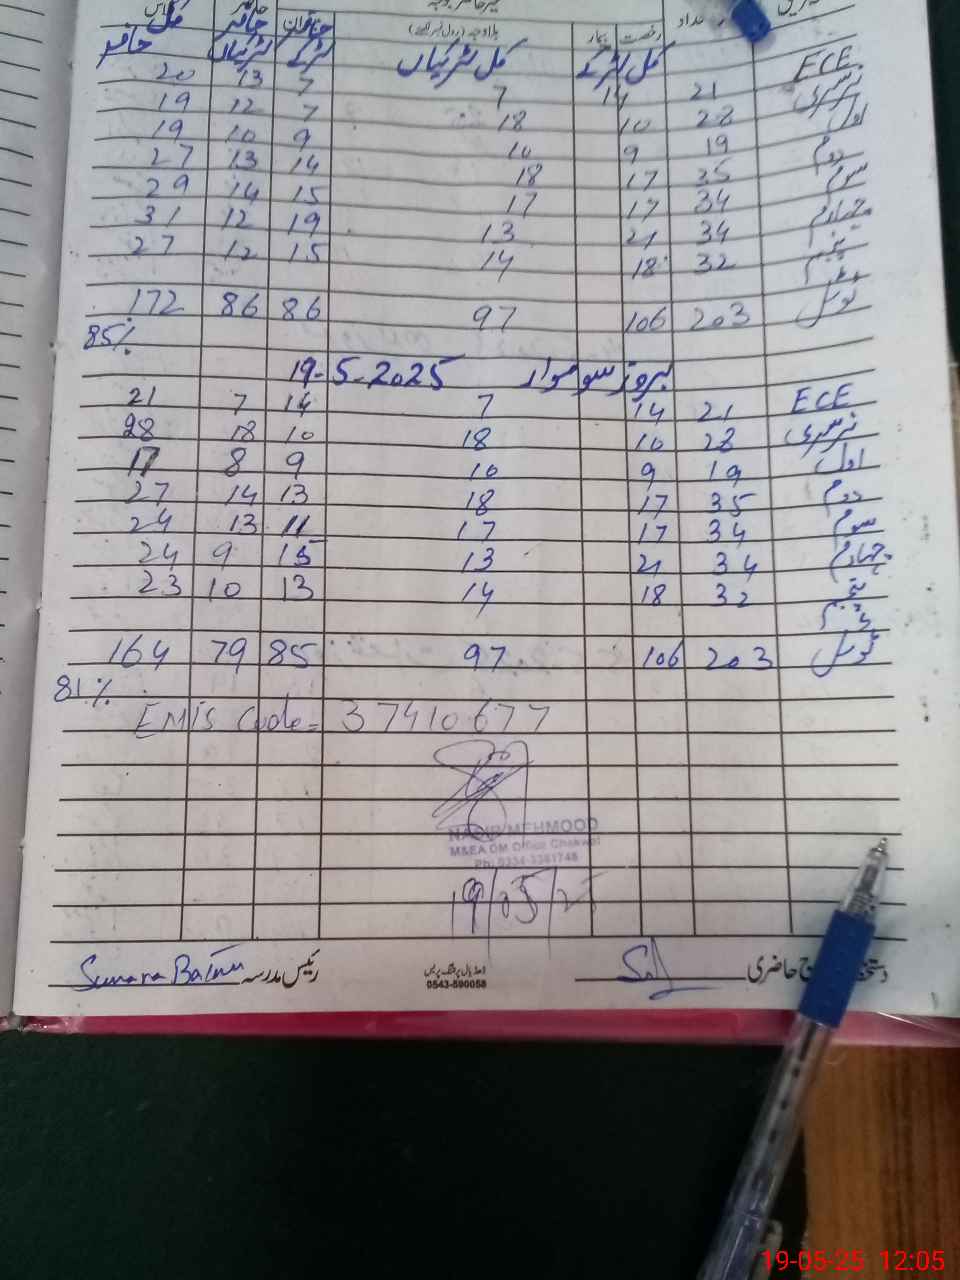 حاضر لڑکیاں لڑکے کل لڑکیاں کل لڑکے
20 13 7 7 14 21 ECE
19 12 7 18 10 28 نرسری
19 10 9 10 9 19 اول
27 13 14 18 17 35 دوم
29 14 15 17 17 34 سوم
31 12 19 13 21 34 چہارم
27 12 15 14 18 32 پنجم
172 86 86 97 106 203 ٹوٹل
85%
19-5-2025 بروز سوموار
21 7 14 7 14 21 ECE
28 18 10 18 10 28 نرسری
17 8 9 10 9 19 اول
27 14 13 18 17 35 دوم
24 13 11 17 17 34 سوم
24 9 15 13 21 34 چہارم
23 10 13 14 18 32 پنجم
164 79 85 97 106 203 ٹوٹل
81%
EMIS Code = 37410677
MEHMOOD
M&EA DM Office Chakwal
19/05/25
رئیس مدرسہ
0543-590058
حاضری
19-05-25 12:05